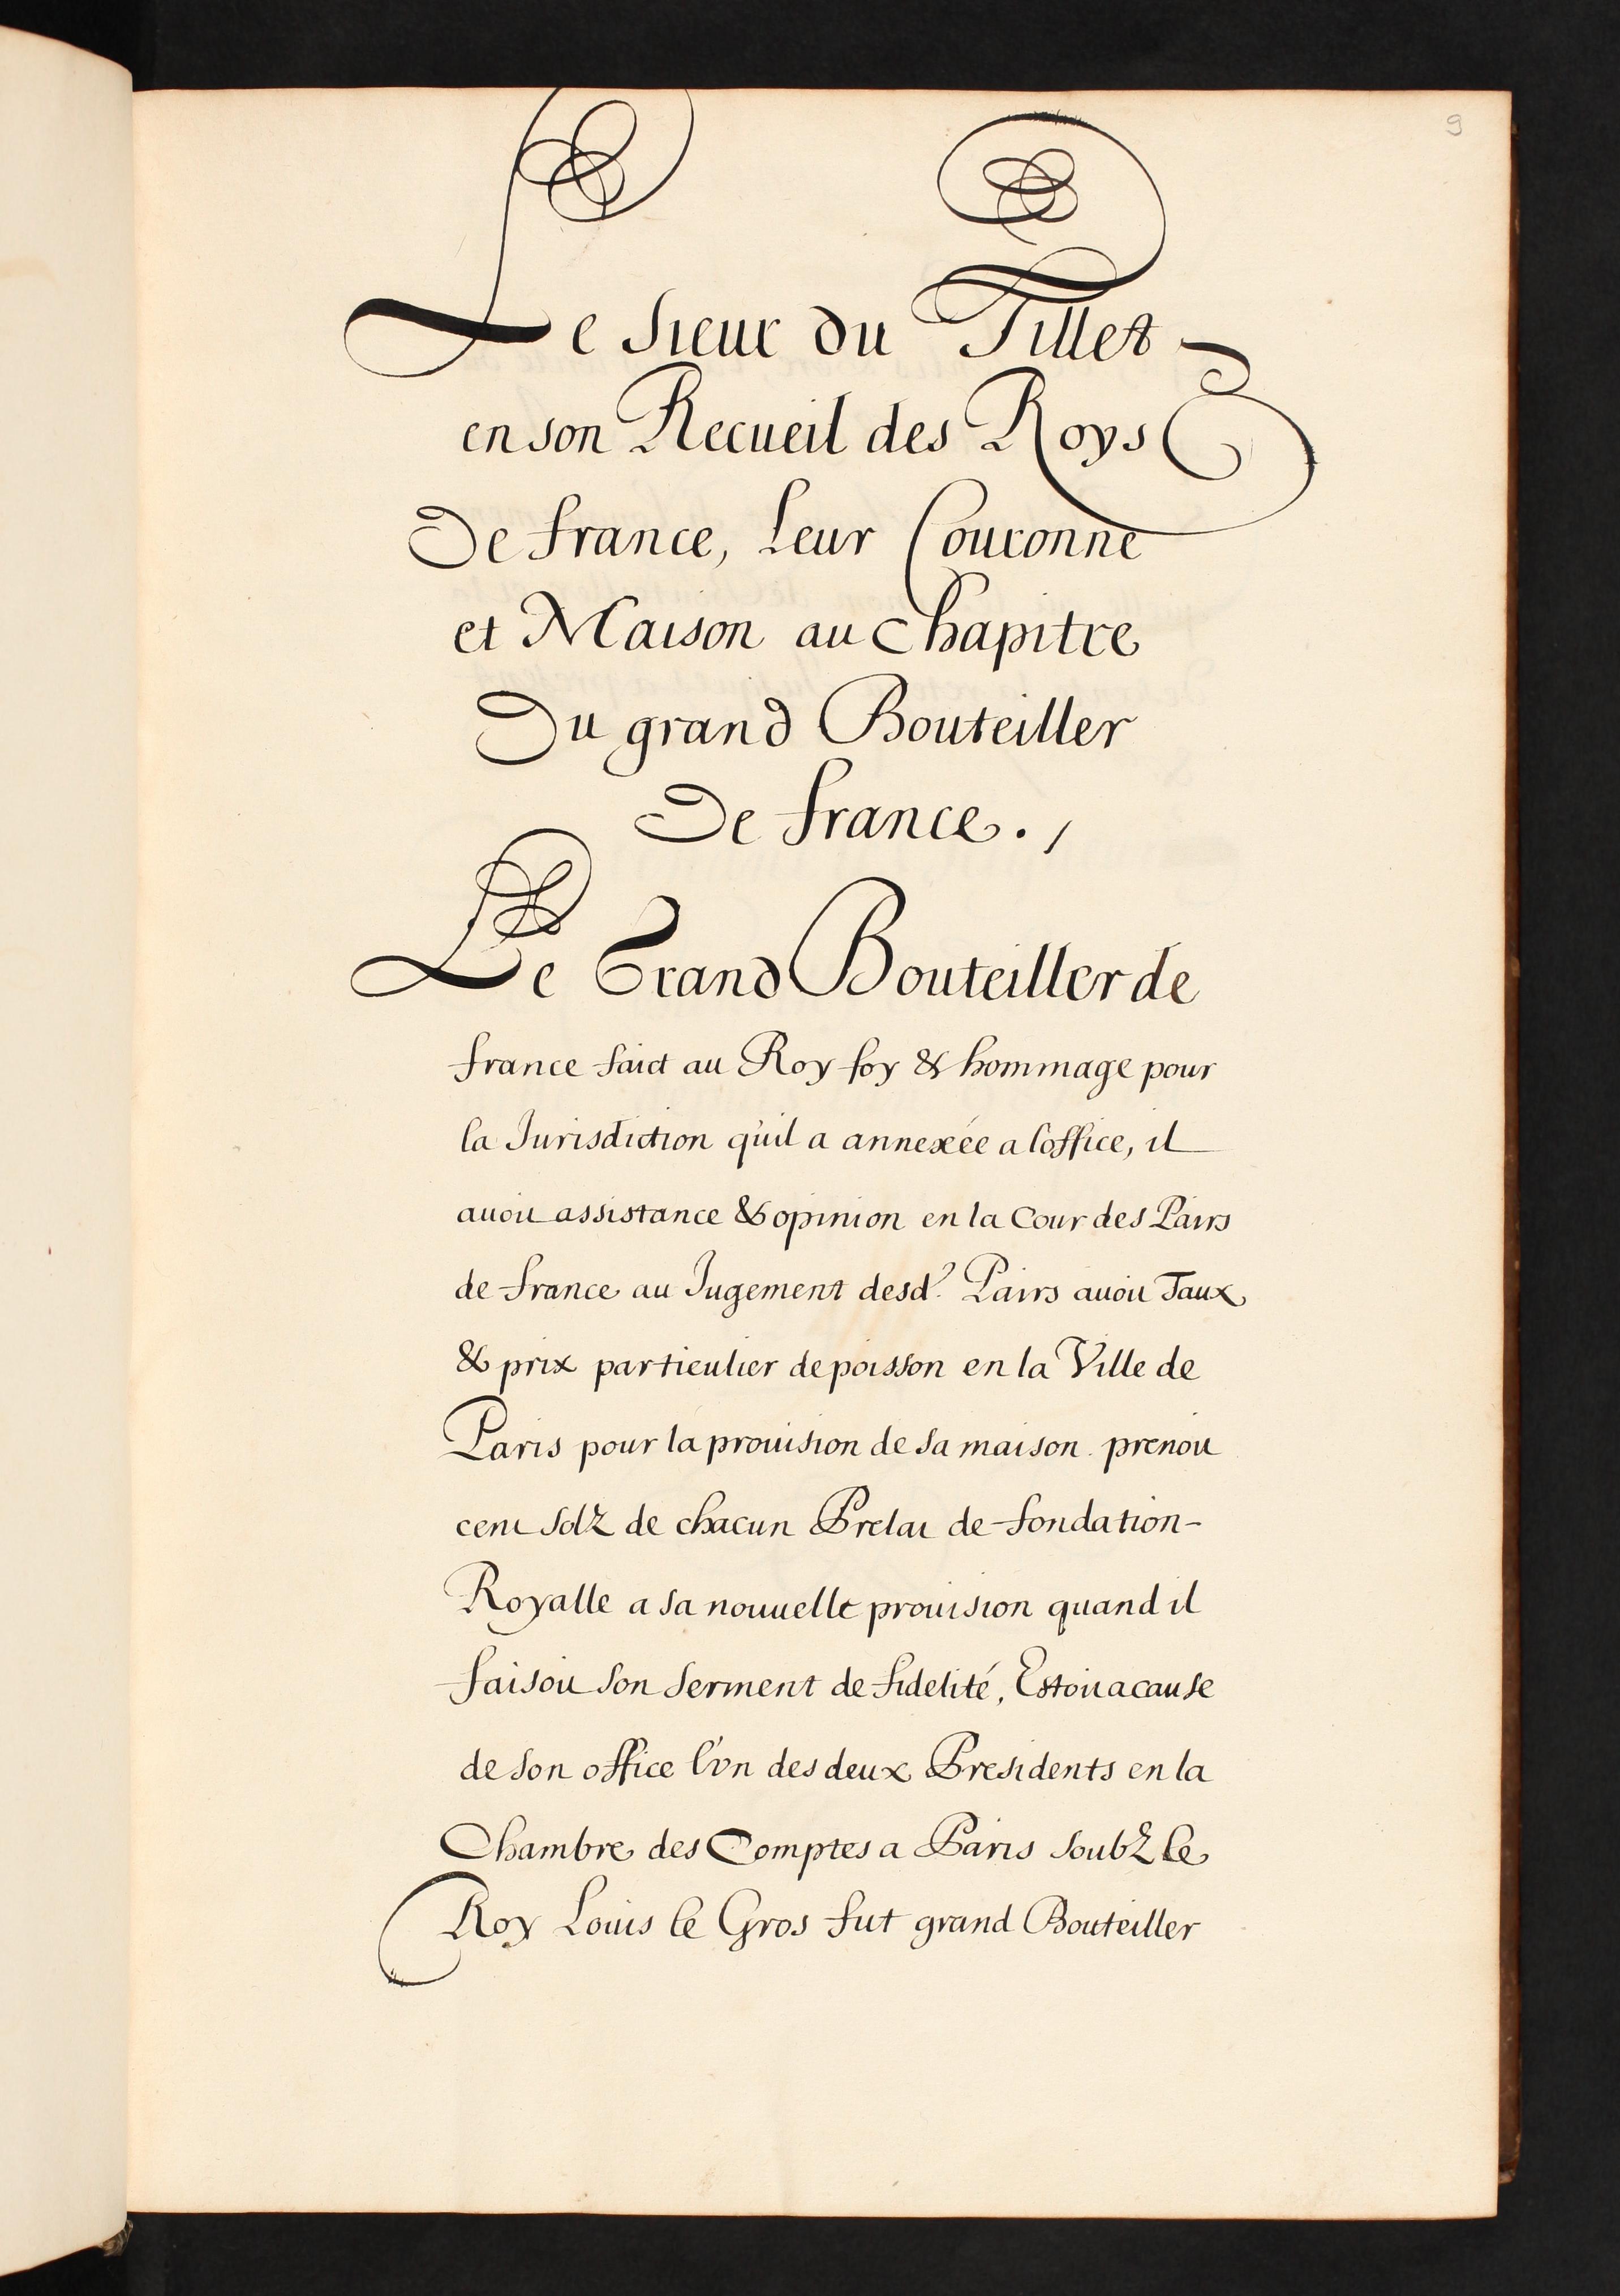 9
Le Sieur du Tillet
en son Recueil des Roys
De france, Leur Couronne
et Maison au Chapitre
Du grand Bouteiller
De france.,
Le Grand Bouteiller de
france faict au Roy foy & hommage pour
la Jurisdiction qu'il a annexée a l'office, il
auoit assistance & opinion en la Cour des Pairs
de france au Jugement desd. Pairs auoit Taux
& prix particulier de poisson en la Ville de
Paris pour la prouision de sa maison. prenoit
cent solz de chacun Prelat de fondation-
Royalle a sa nouuelle prouision quand il
faisoit son serment de fidelité, Estoit a cause
de son office l'vn des deux Presidents en la
Chambre des Comptes a Paris soubz le
Roy Louis le Gros fut grand Bouteiller